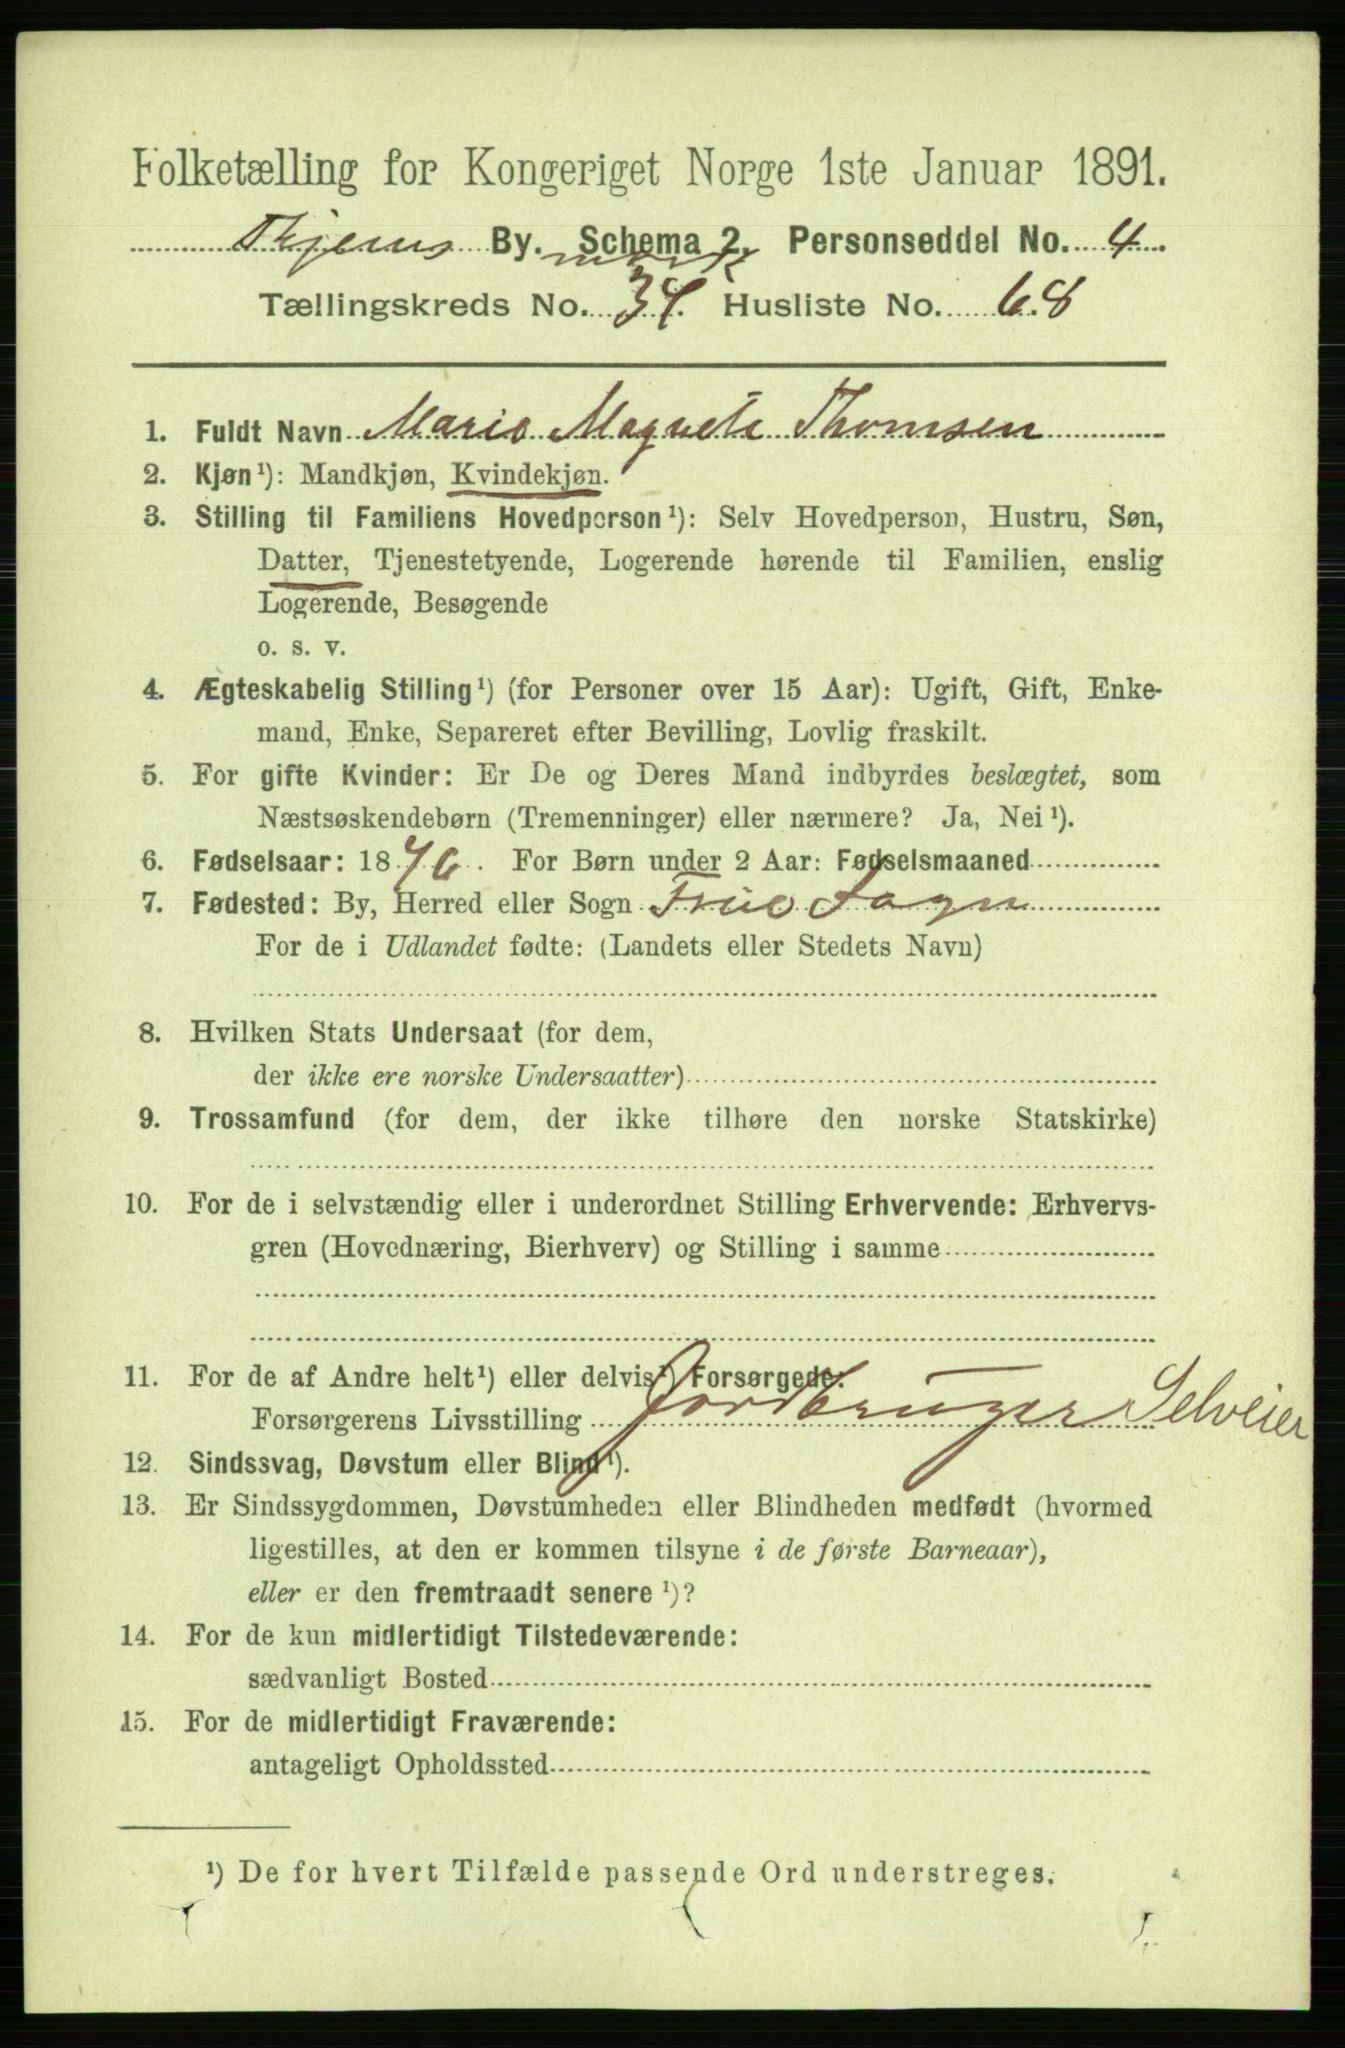 Folketælling for Kongeriget Norge 1ste Januar 1891.
Trjems By. Schema 2. Personseddel No. 4.
mark
Tællingskreds No. 34. Husliste No. 68
1. Fuldt Navn Marie Magnete Thomsen
2. Kjøn¹): Mandkjøn, Kvindekjøn.
3. Stilling til Familiens Hovedperson¹): Selv Hovedperson, Hustru, Søn,
Datter, Tjenestetyende, Logerende hørende til Familien, enslig
Logerende, Besøgende
o. s. v.
4. Ægteskabelig Stilling¹) (for Personer over 15 Aar): Ugift, Gift, Enke-
mand, Enke, Separeret efter Bevilling, Lovlig fraskilt.
5. For gifte Kvinder: Er De og Deres Mand indbyrdes beslægtet, som
Næstsøskendebørn (Tremenninger) eller nærmere? Ja, Nei¹).
6. Fødselsaar: 1876. For Børn under 2 Aar: Fødselsmaaned
7. Fødested: By, Herred eller Sogn Frue Sogn
For de i Udlandet fødte: (Landets eller Stedets Navn)
8. Hvilken Stats Undersaat (for dem,
der ikke ere norske Undersaatter)
9. Trossamfund (for dem, der ikke tilhøre den norske Statskirke)
10. For de i selvstændig eller i underordnet Stilling Erhvervende: Erhvervs-
gren (Hovednæring, Bierhverv) og Stilling i samme
11. For de af Andre helt¹) eller delvis¹) Forsørgede:
Forsørgerens Livsstilling Jordbruger Selveier
12. Sindssvag, Døvstum eller Blind¹).
13. Er Sindssygdommen, Døvstumheden eller Blindheden medfødt (hvormed
ligestilles, at den er kommen tilsyne i de første Barneaar),
eller er den fremtraadt senere¹)?
14. For de kun midlertidigt Tilstedeværende:
sædvanligt Bosted
15. For de midlertidigt Fraværende:
antageligt Opholdssted
¹) De for hvert Tilfælde passende Ord understreges.